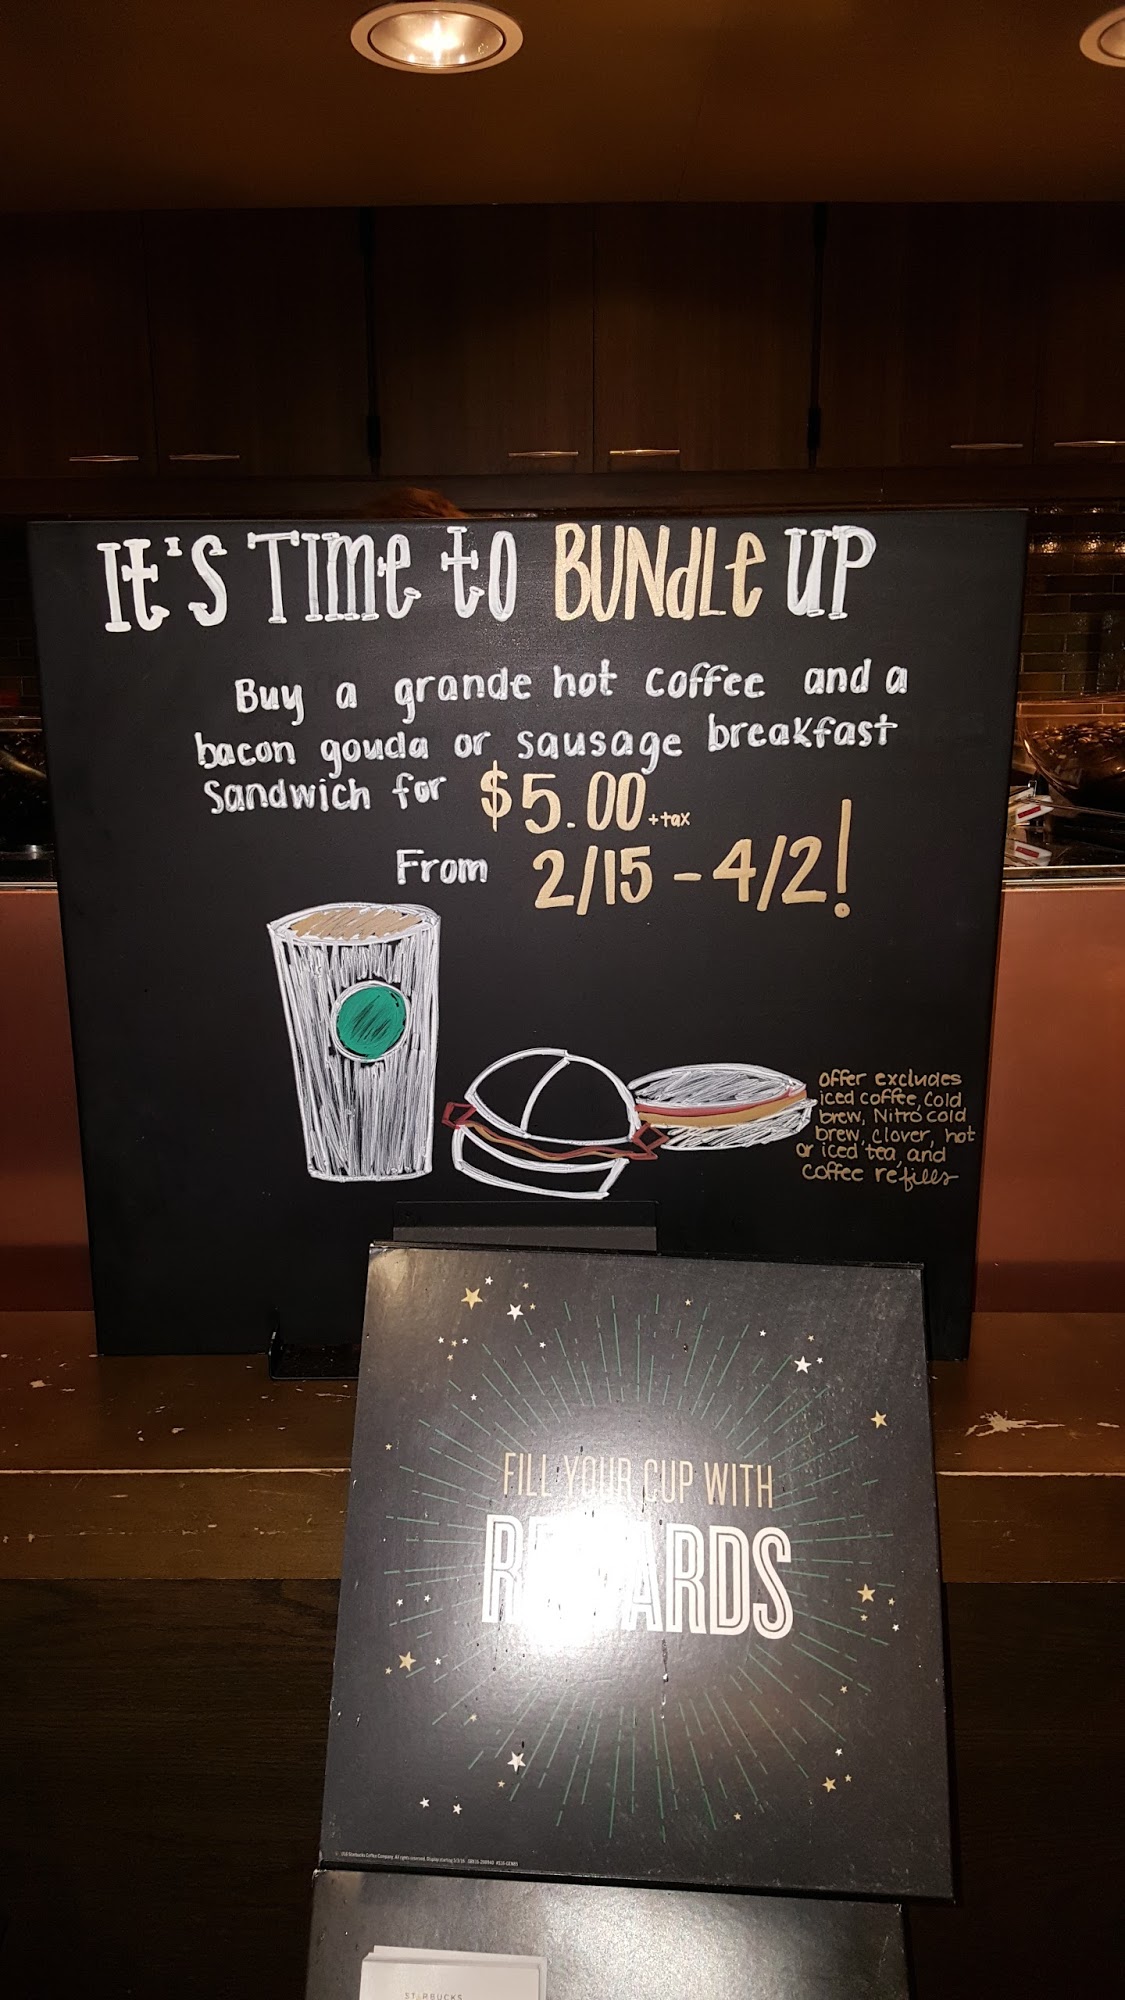 It's Time to BUNdLe UP
Buy a grande hot coffee and a
bacon gouda or sausage breakfast
Sandwich for $5.00 +tax
From 2/15 - 4/2!
offer excludes
iced coffee, Cold
brew, Nitro cold
brew, clover, hot
or iced tea, and
coffee refills
FILL YOUR CUP WITH
REWARDS
STARBUCKS